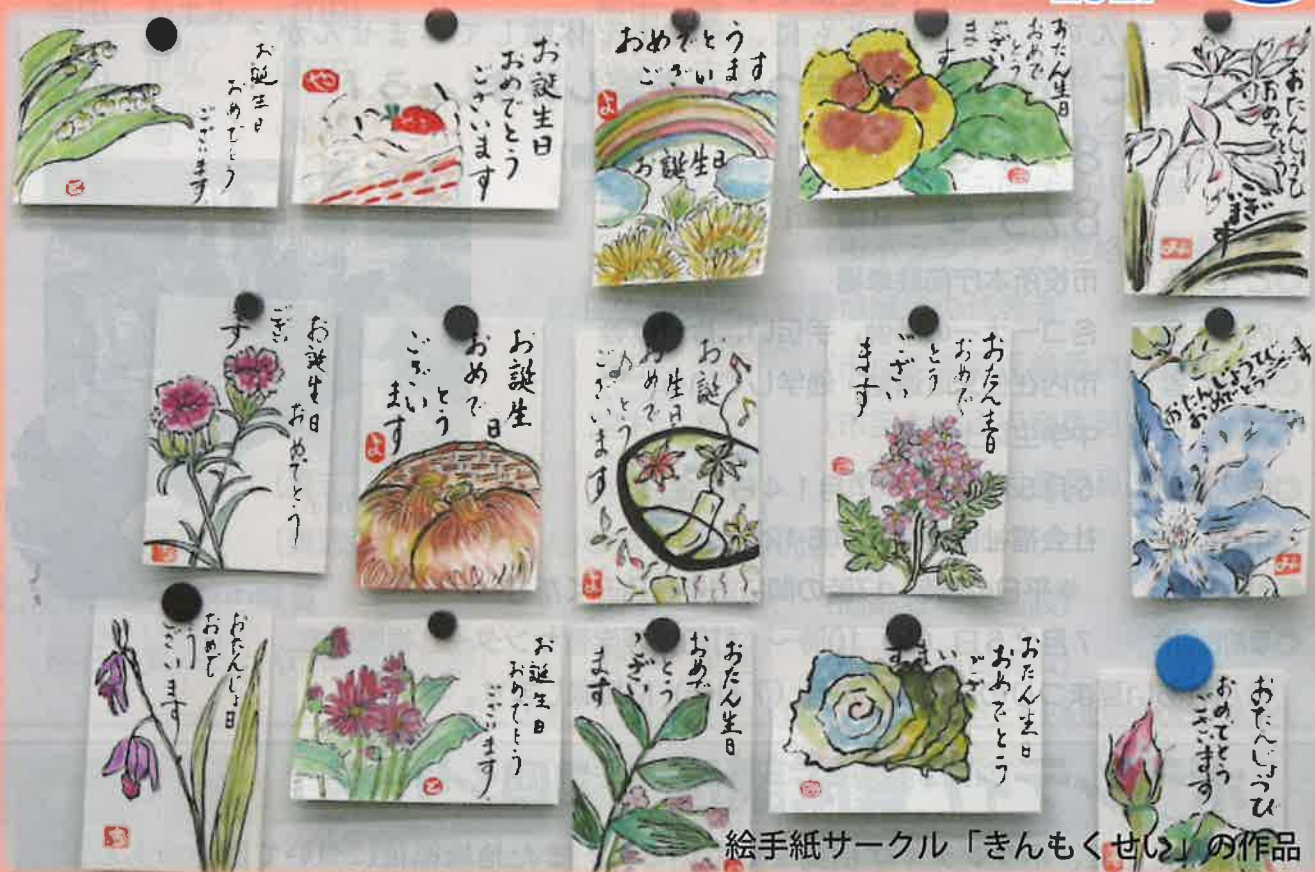 お誕生日
おめでとう
ございます
と
お誕生日
おめでとう
ございます
や
おめでとう
ございます
よ
お誕生日
おたん生日
おめで
とう
ござい
ます
おたんじょうび
おめでとう
ござい
ます
み
お誕生日
おめでとう
ござい
ます
お誕生
日
おめで
とう
ござい
ます
よ
お誕
生日
おめで
とう
ございます
よ
おたん生日
おめで
とう
ござい
ます
おたんじょうび
おめでとうございます
み
おたんじょ日
おめで
とう
ございます
ち
お誕生日
おめでとう
ございます
と
おたん生日
おめで
とう
ござい
ます
おたん生日
おめでとう
ござ
いま
す
おたんじょうび
おめでとう
ございます
絵手紙サークル「きんもくせい」の作品